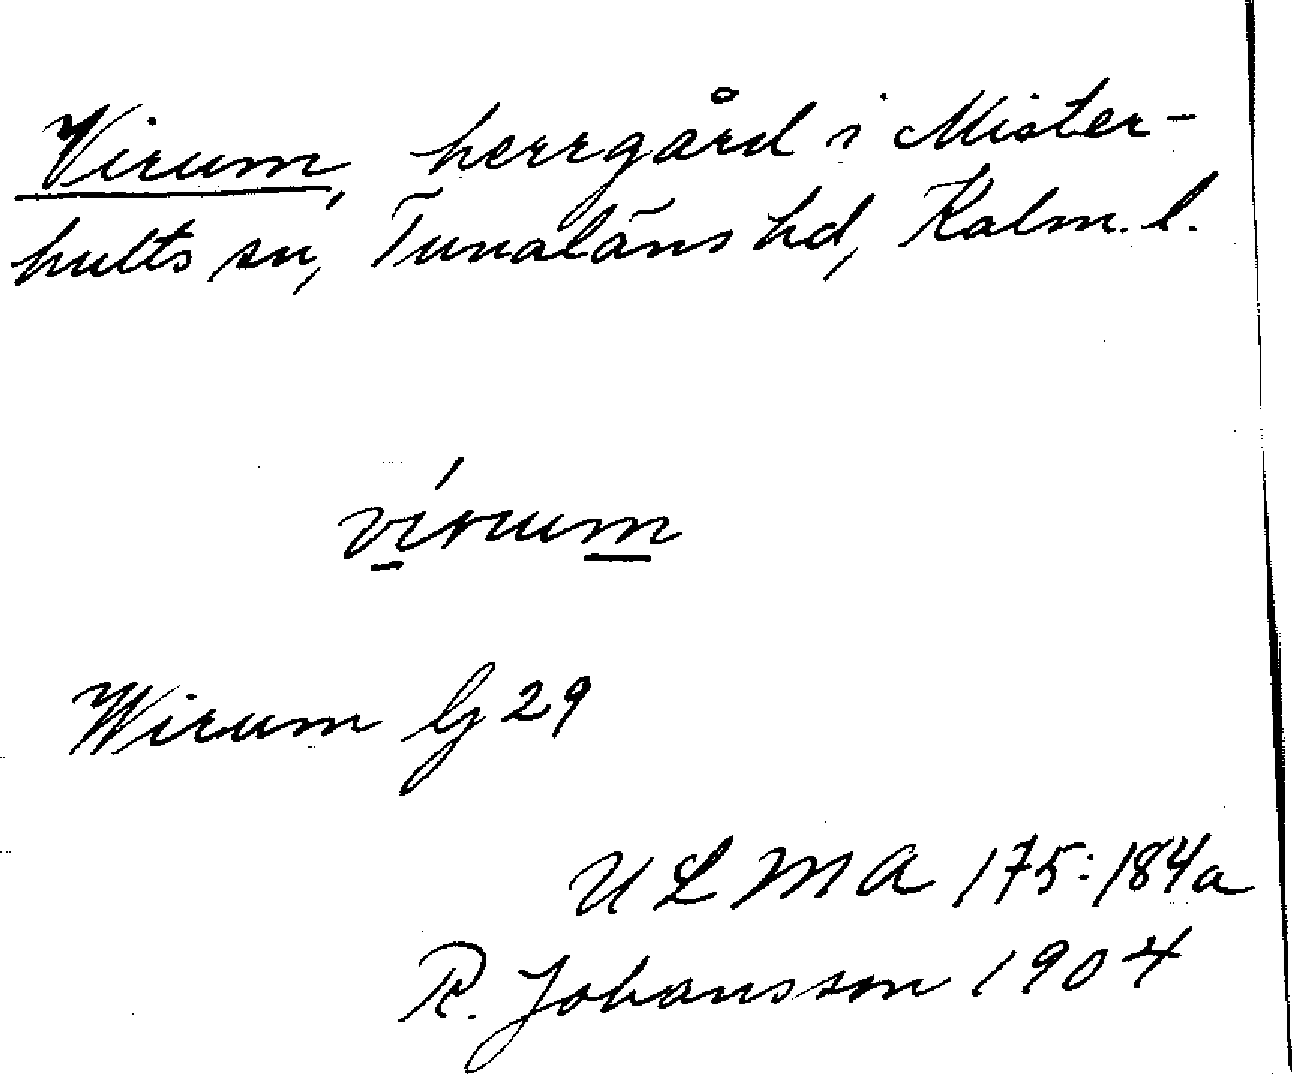 Virum, herrgård i Mister-
hults sn, Tunaläns hd, Kalm. l.
vírum
Wirum G 29
ULMA 175:184a
R. Johansson 1904